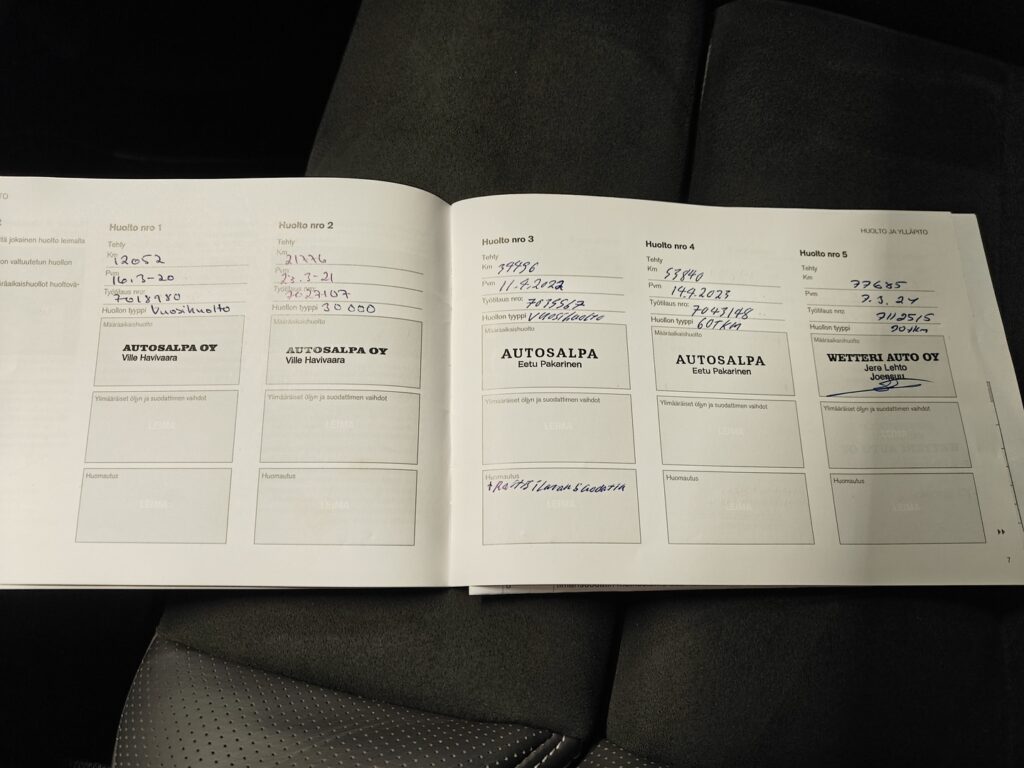 TO
itä jokainen huolto leimalla
on valtuutetun huollon
äräaikaishuollot huoltovä-
Huolto nro 1
Tehty
Km 12052
Pvm 16.3-20
Työtilaus nro: 7018980
Huollon tyyppi Vuosihuolto
Määräaikaishuolto
AUTOSALPA OY
Ville Havivaara
Ylimääräiset öljyn ja suodattimen vaihdot
LEIMA
Huomautus
LEIMA
Huolto nro 2
Tehty
Km 21776
Pvm 23.3-21
Työtilaus nro: 7027107
Huollon tyyppi 30 000
Määräaikaishuolto
AUTOSALPA OY
Ville Havivaara
Ylimääräiset öljyn ja suodattimen vaihdot
LEIMA
Huomautus
LEIMA
HUOLTO JA YLLÄPITO
Huolto nro 3
Tehty
Km 39996
Pvm 11.4.2022
Työtilaus nro: 7035567
Huollon tyyppi Vuosihuolto
Määräaikaishuolto
AUTOSALPA
Eetu Pakarinen
Ylimääräiset öljyn ja suodattimen vaihdot
LEIMA
Huomautus
+Raitisilmansuodatin
LEIMA
Huolto nro 4
Tehty
Km 53840
Pvm 14.4.2023
Työtilaus nro: 7043148
Huollon tyyppi 60TKM
Määräaikaishuolto
AUTOSALPA
Eetu Pakarinen
Ylimääräiset öljyn ja suodattimen vaihdot
LEIMA
Huomautus
LEIMA
Huolto nro 5
Tehty
Km 77685
Pvm 7.3.24
Työtilaus nro: 7112515
Huollon tyyppi 90tkm
Määräaikaishuolto
WETTERI AUTO OY
Jere Lehto
Joensuu
Ylimääräiset öljyn ja suodattimen vaihdot
Huomautus
LEIMA
7